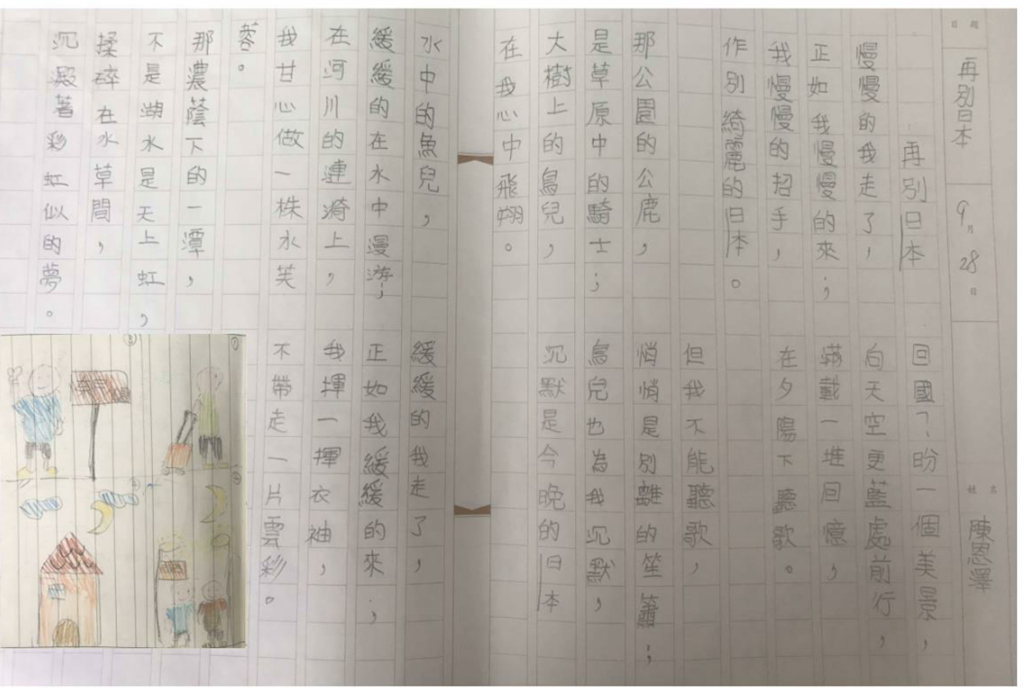 日期
再別日本
9月28日
姓名
陳恩澤
再別日本
慢慢的我走了，
正如我慢慢的來；
我慢慢的招手，
作別綺麗的日本。
那公園的公鹿，
是草原中的騎士；
大樹上的鳥兒，
在我心中飛翔。
水中的魚兒，
緩緩的在水中漫游；
在河川的連漪上，
我甘心做一株水芙
蓉。
那濃蔭下的一潭，
不是湖水是天上虹，
揉碎在水草間，
沉澱著彩虹似的夢。
回國？盼一個美景，
向天空更藍處前行，
滿戴一堆回憶，
在夕陽下聽歌。
但我不能聽歌，
悄悄是別離的笙簫；
鳥兒也為我沉默，
沉默是今晚的日本
緩緩的我走了，
正如我緩緩的來；
我揮一揮衣袖，
不帶走一片雲彩。